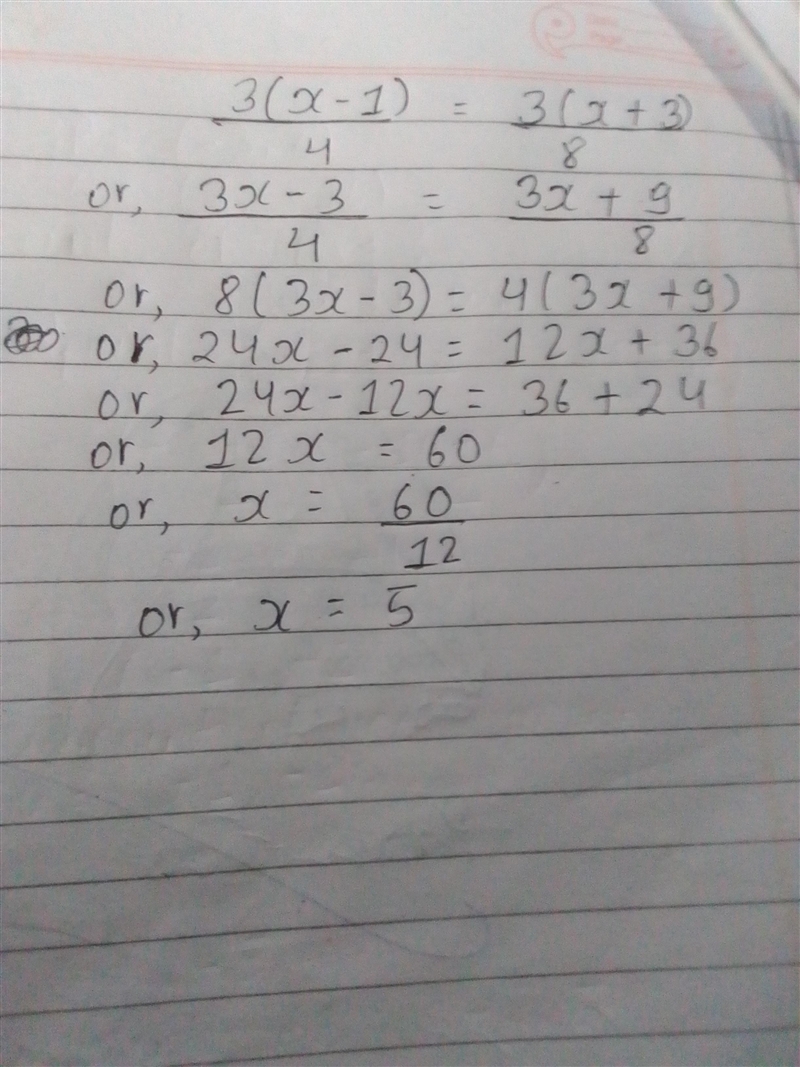 3(x-1)/4 = 3(x+3)/8
or, 3x-3/4 = 3x+9/8
or, 8(3x-3) = 4(3x+9)
or, 24x-24 = 12x+36
or, 24x-12x = 36+24
or, 12x = 60
or, x = 60/12
or, x = 5